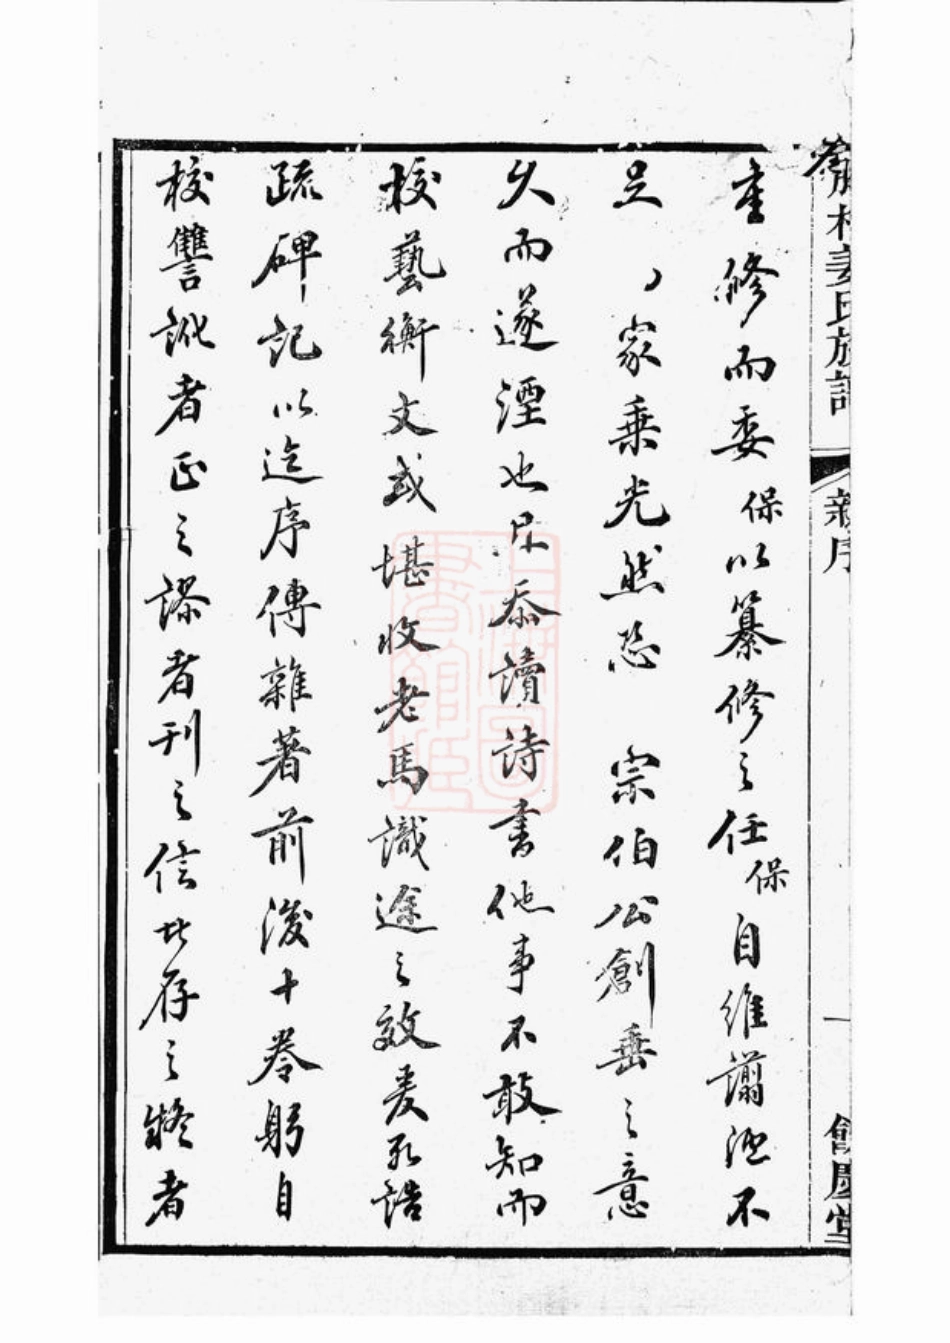 村姜氏族譜 新序 一 餘慶堂
重修而委保以纂修之任保自維譾陋不
足家乘光然恐 宗伯公創垂之意
久而遂湮也忝讀詩書他事不敢知而
校藝衡文或堪收老馬識途之效爰取誥
疏碑記以迄序傳雜著前後十卷躬自
校讐訛者正之謬者刊之信者存之疑者